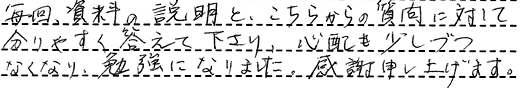 毎回、資料の説明と、こちらからの質問に対して
分りやすく答えて下さり、心配も少しづつ
なくなり、勉強になりました。感謝申し上げます。